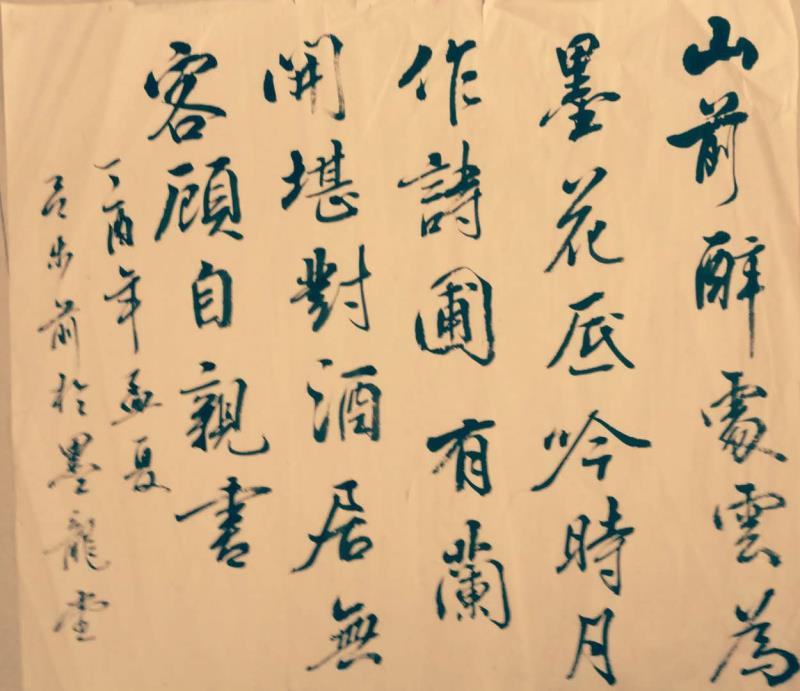 山前醉處雲為
墨花底吟時月
作詩圃有蘭
開堪對酒居無
客顧自親書
丁酉年孟夏
呂步前於墨龍堂